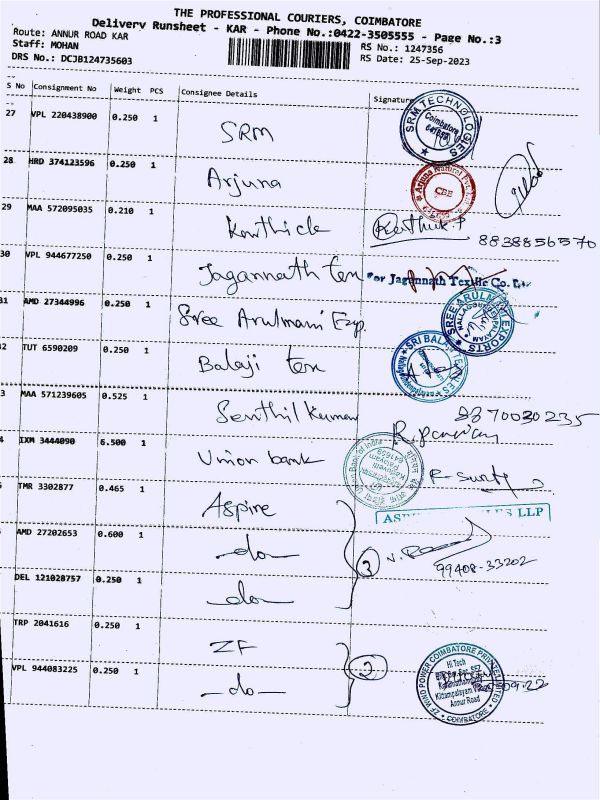 THE PROFESSIONAL COURIERS, COIMBATORE
Delivery Runsheet - KAR - Phone No.:0422-3505555 - Page No.:3
Route: ANNUR ROAD KAR
RS No.: 1247356
Staff: MOHAN
RS Date: 25-Sep-2023
DRS No.: DCJB124735603
S No Consignment No Weight PCS Consignee Details Signature
27 VPL 220438900 0.250 1 SRM
SRM TECHNOLOGIES
Coimbatore
28 HRD 374123596 0.250 1 Arjuna
Arjuna Natural Pvt. Ltd.
CBE
29 MAA 572095035 0.210 1 Karthick
Karthick.P
8838856570
30 VPL 944677250 0.250 1 Jagannath Tex
For Jagannath Textile Co. Ltd
31 AMD 27344996 0.250 1 Sree Arulmani Exp.
SREE ARULMANI EXPORTS
2 TUT 6590209 0.250 1 Balaji tex
SRI BALAJI TEXTILES
3 MAA 571239605 0.525 1 Senthil Kumar
9870030235
4 IXM 3444090 6.500 1 Union bank
Union Bank of India
TMR 3302877 0.465 1 Aspire
LES LLP
AMD 27202653 0.600 1 -do-
3
99408-33202
DEL 121028757 0.250 1 -do-
TRP 2041616 0.250 1 ZF
2
ZF WIND POWER COIMBATORE PRIVATE LIMITED
Hi Tech
Annur Road
COIMBATORE
VPL 944083225 0.250 1 -do-